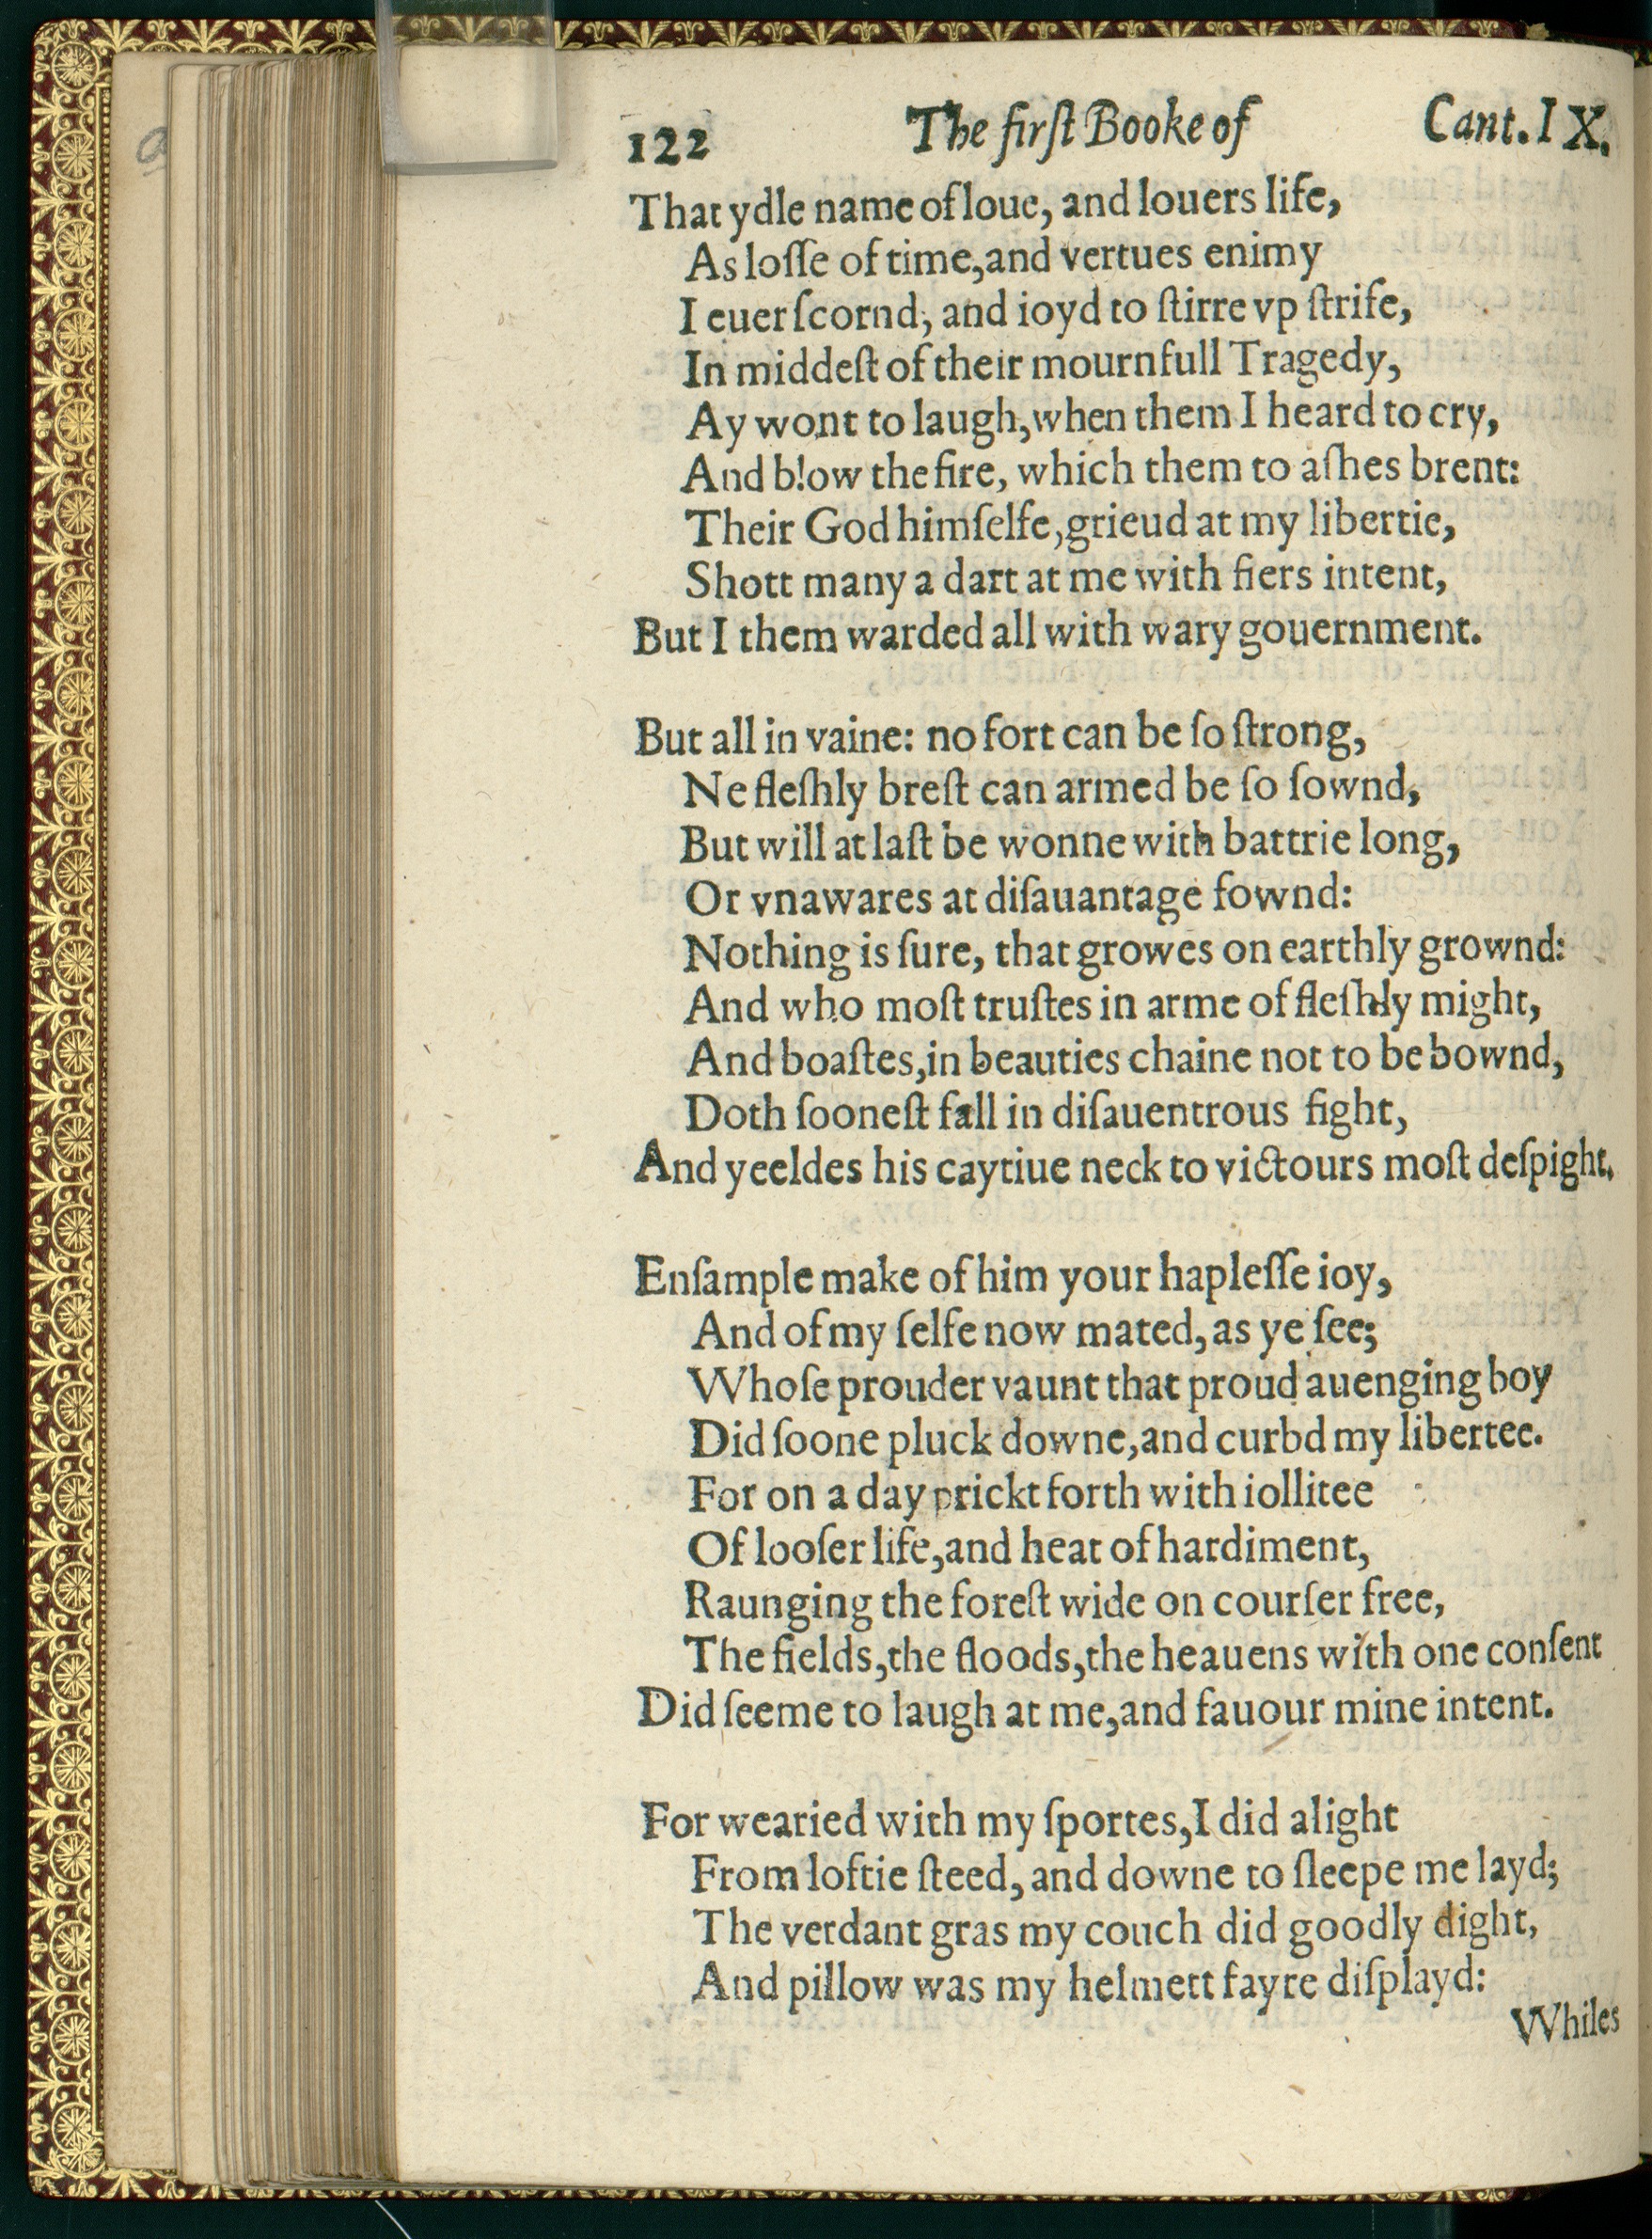 122 The firſt Booke of Cant. IX.
That ydle name of loue, and louers life,
As loſſe of time, and vertues enimy
I euer ſcornd, and ioyd to ſtirre vp ſtrife,
In middeſt of their mournfull Tragedy,
Ay wont to laugh, when them I heard to cry,
And blow the fire, which them to aſhes brent:
Their God himſelfe, grieud at my libertie,
Shott many a dart at me with fiers intent,
But I them warded all with wary gouernment.
But all in vaine: no fort can be ſo ſtrong,
Ne fleſhly breſt can armed be ſo ſownd,
But will at laſt be wonne with battrie long,
Or vnawares at diſauantage fownd:
Nothing is ſure, that growes on earthly grownd:
And who moſt truſtes in arme of fleſhly might,
And boaſtes, in beauties chaine not to be bownd,
Doth ſooneſt fall in diſauentrous fight,
And yeeldes his caytiue neck to victours moſt deſpight.
Enſample make of him your hapleſſe ioy,
And of my ſelfe now mated, as ye ſee;
Whoſe prouder vaunt that proud auenging boy
Did ſoone pluck downe, and curbd my libertee.
For on a day prickt forth with iollitee
Of looſer life, and heat of hardiment,
Raunging the foreſt wide on courſer free,
The fields, the floods, the heauens with one conſent
Did ſeeme to laugh at me, and fauour mine intent.
For wearied with my ſportes, I did alight
From loftie ſteed, and downe to ſleepe me layd;
The verdant gras my couch did goodly dight,
And pillow was my helmett fayre diſplayd:
Whiles